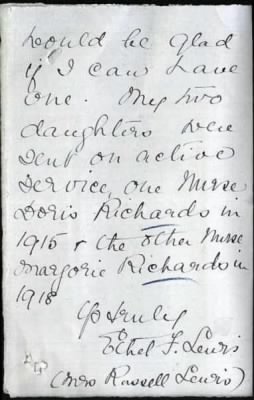 would be glad
if I can have
one. My two
daughters were
sent on active
service, one Nurse
Doris Richards in
1915 & the other Nurse
Marjorie Richards in
1918
Yrs truly
Ethel F. Lewis
(Mrs Russell Lewis)